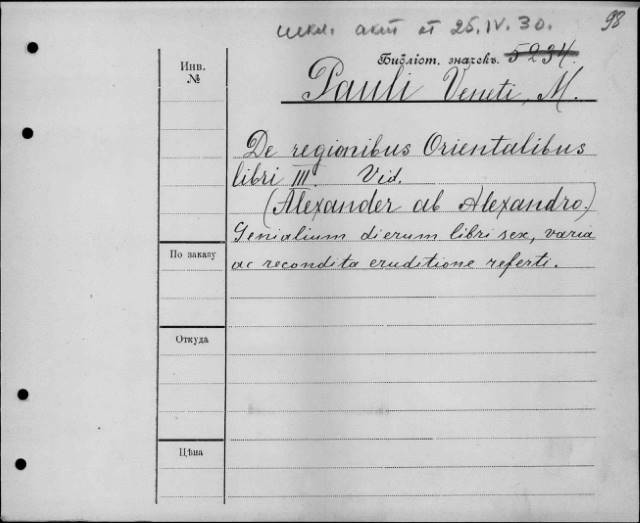 искл. акт от 25.IV.30.
98
Библіот. значекъ. 5234.
Инв.
№
Pauli Veneti, M.
De regionibus Orientalibus
libri III. Vid.
(Alexander ab Alexandro.)
Genialium dierum libri sex, varia
ac recondita eruditione referti.
По заказу
Откуда
Цѣна